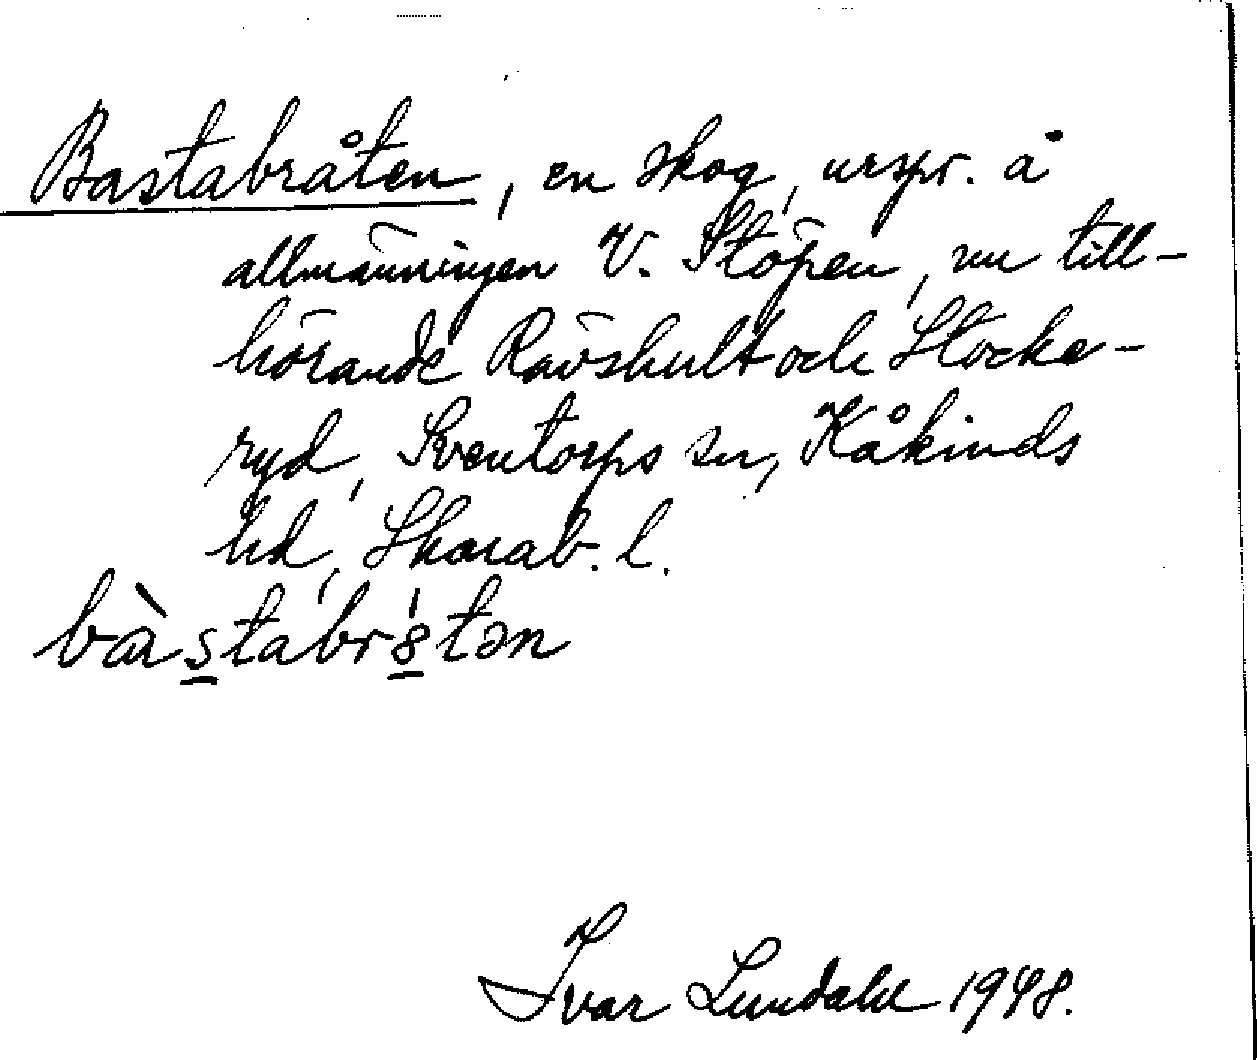 Bastabråten, en skog, urspr. å
allmänningen V. Stöpen, nu till-
hörande Rävshult och Stocke-
ryd, Sventorps sn, Kåkinds
hd, Skarab. l.
bàstabr8tən
Ivar Lundahl 1948.